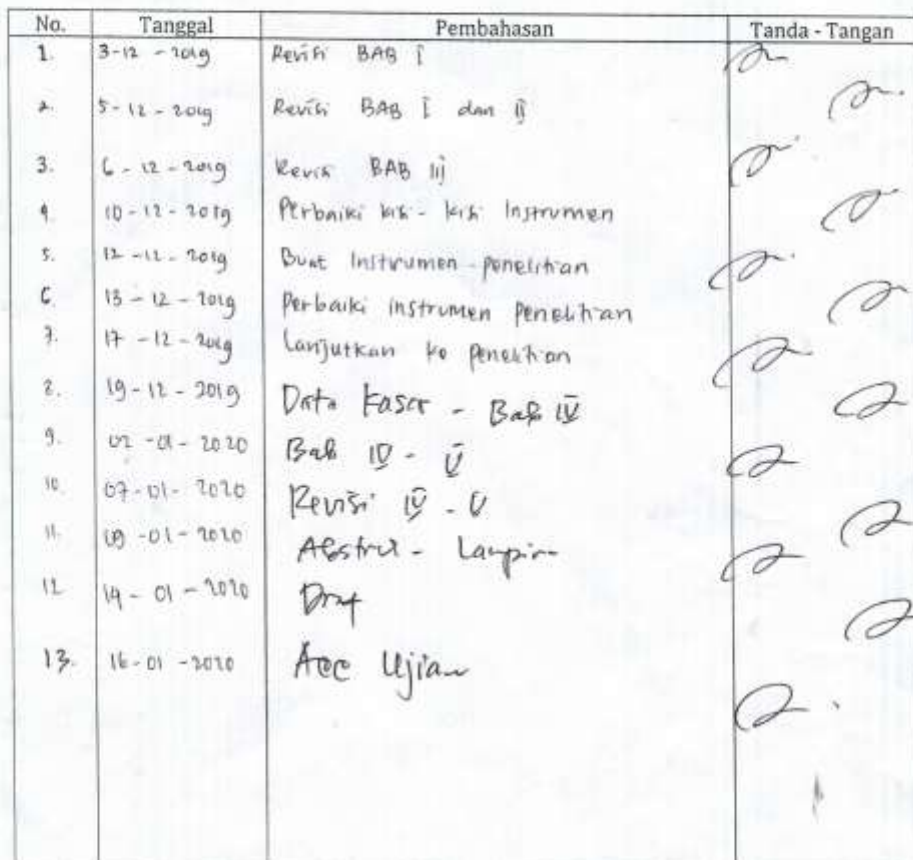 No. Tanggal Pembahasan Tanda - Tangan
1. 3-12-2019 Revisi BAB I
2. 5-12-2019 Revisi BAB I dan II
3. 6-12-2019 Revisi BAB III
4. 10-12-2019 Perbaiki kisi-kisi Instrumen
5. 12-12-2019 Buat Instrumen penelitian
6 13-12-2019 Perbaiki instrumen penelitian
7. 17-12-2019 Lanjutkan ke penelitian
8. 19-12-2019 Data Kasar - Bab IV
9. 02-01-2020 Bab IV - V
10. 07-01-2020 Revisi IV - V
11. 09-01-2020 Abstrak - Lampiran
12 14-01-2020 Draf
13. 16-01-2020 Acc Ujian